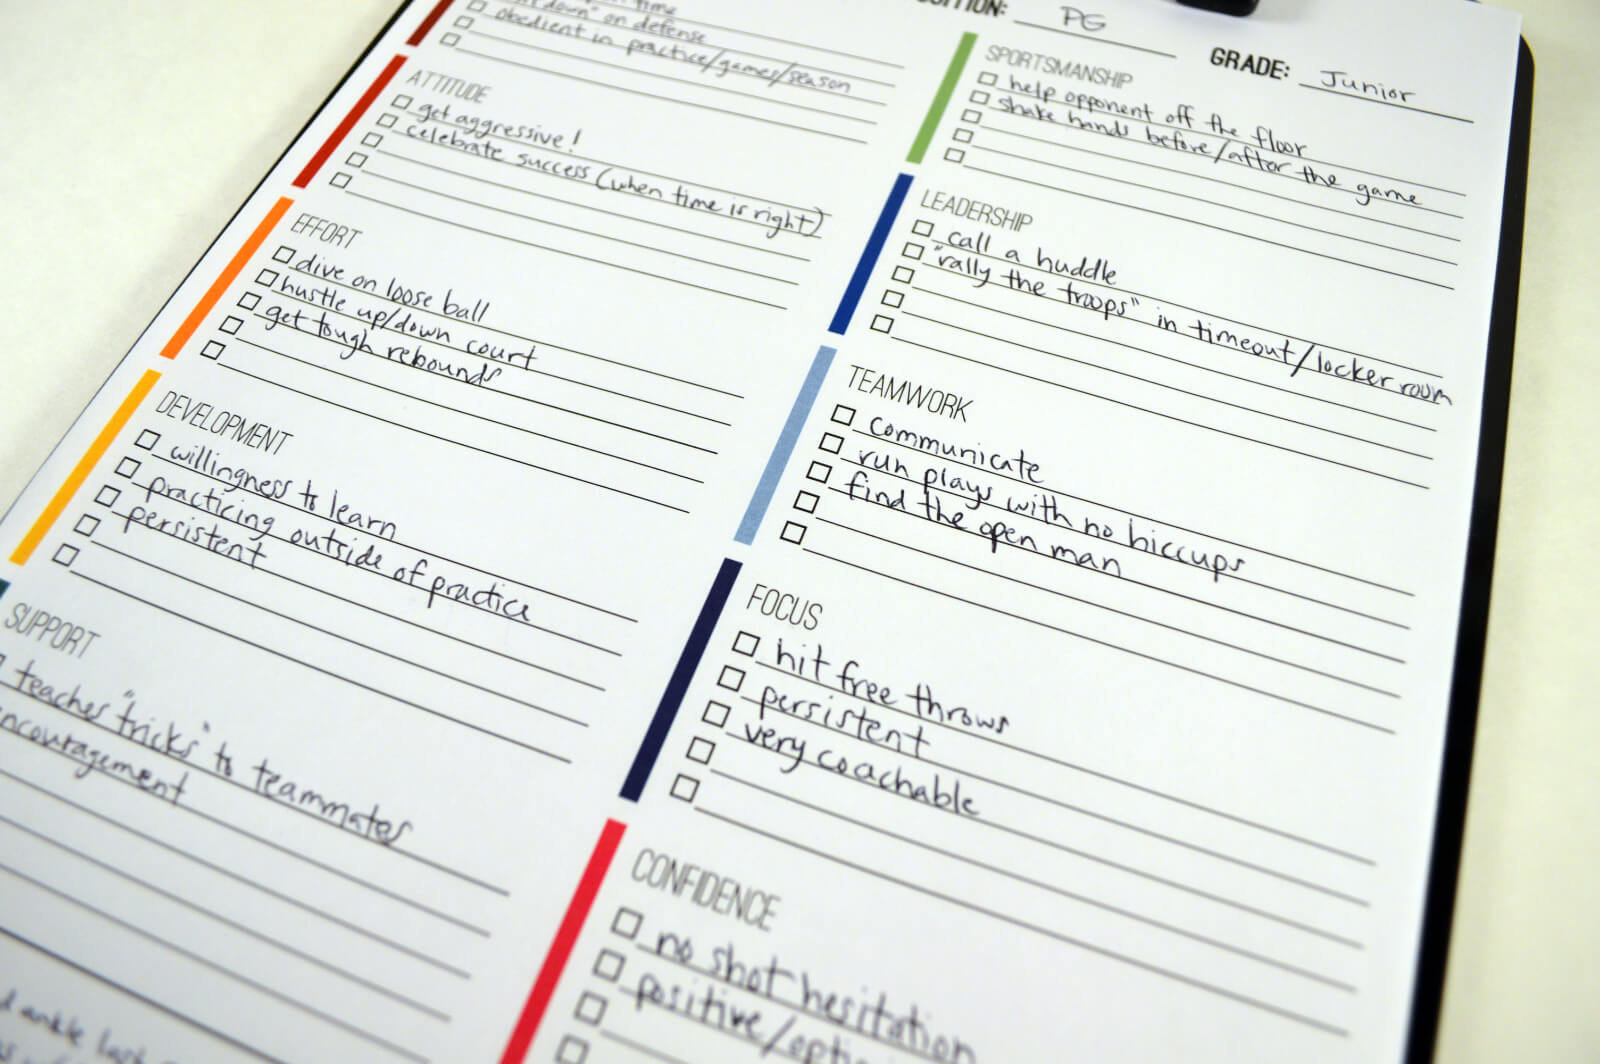 time
down" on defense
obedient in practice/games/season
ATTITUDE
get aggressive!
celebrate success (when time is right)
EFFORT
dive on loose ball
hustle up/down court
get tough rebounds
DEVELOPMENT
willingness to learn
practicing outside of practice
persistent
SUPPORT
teaches "tricks" to teammates
encouragement
ankle last
PG
GRADE: Junior
SPORTSMANSHIP
help opponent off the floor
shake hands before/after the game
LEADERSHIP
call a huddle
"rally the troops" in timeout/locker room
TEAMWORK
communicate
run plays with no hiccups
find the open man
FOCUS
hit free throws
persistent
very coachable
CONFIDENCE
no shot hesitation
positive/